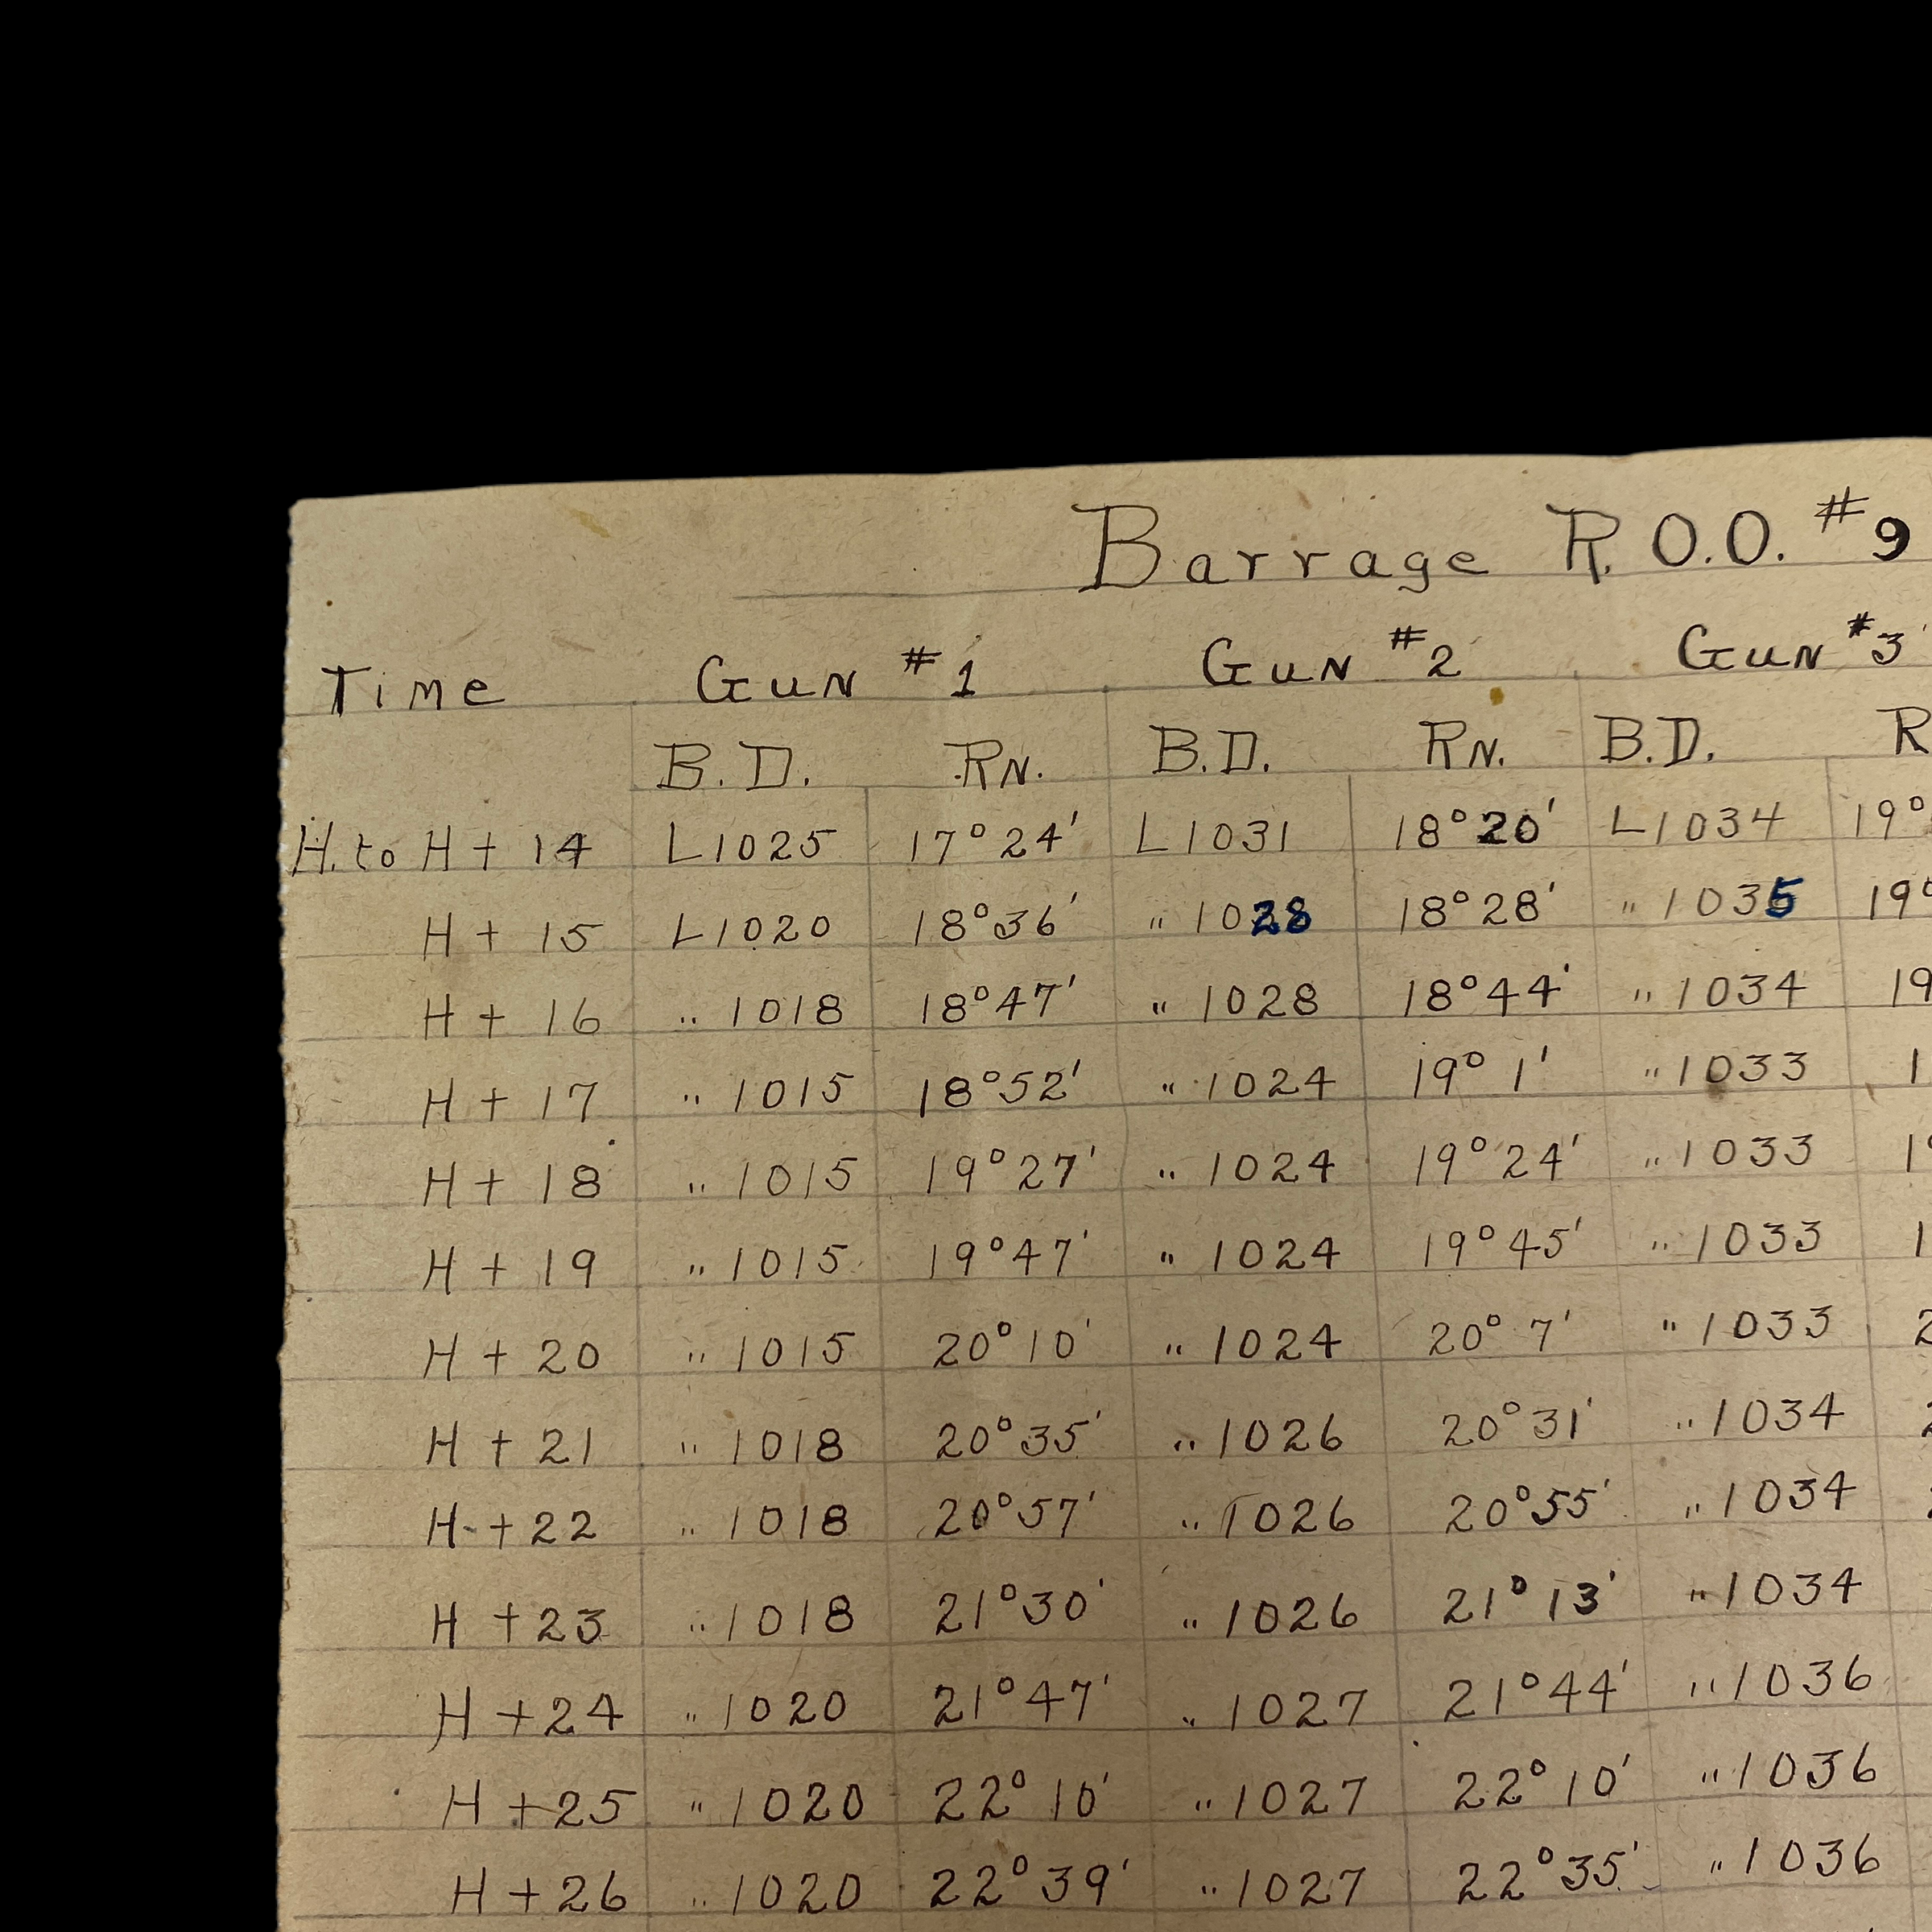 Barrage R.O.O. #9
Time Gun #1 Gun #2 Gun #3
B.D. Rn. B.D. Rn. B.D. R
H. to H + 14 L1025 17°24' L1031 18°20' L1034 19°
H + 15 L1020 18°36' " 1028 18°28' " 1035 19°
H + 16 " 1018 18°47' " 1028 18°44' " 1034 19
H + 17 " 1015 18°52' " 1024 19° 1' " 1033 1
H + 18 " 1015 19°27' " 1024 19°24' " 1033 19
H + 19 " 1015 19°47' " 1024 19°45' " 1033 1
H + 20 " 1015 20°10' " 1024 20° 7' " 1033 2
H + 21 " 1018 20°35' " 1026 20°31' " 1034 2
H + 22 " 1018 20°57' " 1026 20°55' " 1034
H + 23 " 1018 21°30' " 1026 21°13' " 1034
H + 24 " 1020 21°47' " 1027 21°44' " 1036
H + 25 " 1020 22°10' " 1027 22°10' " 1036
H + 26 " 1020 22°39' " 1027 22°35' " 1036